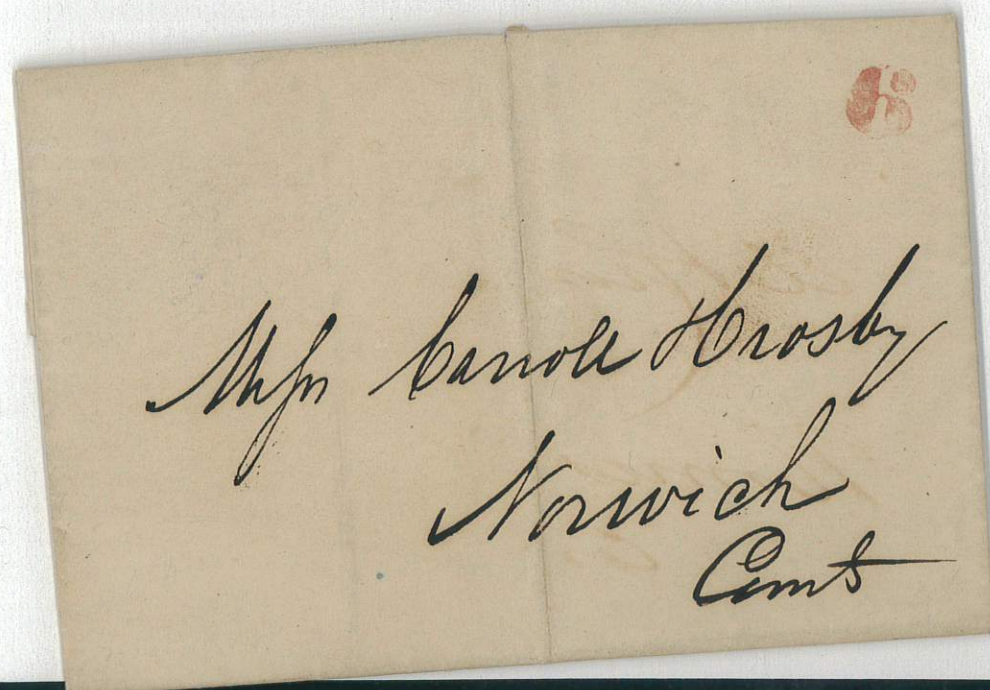 6
Messrs Carroll & Crosby
Norwich
Connt